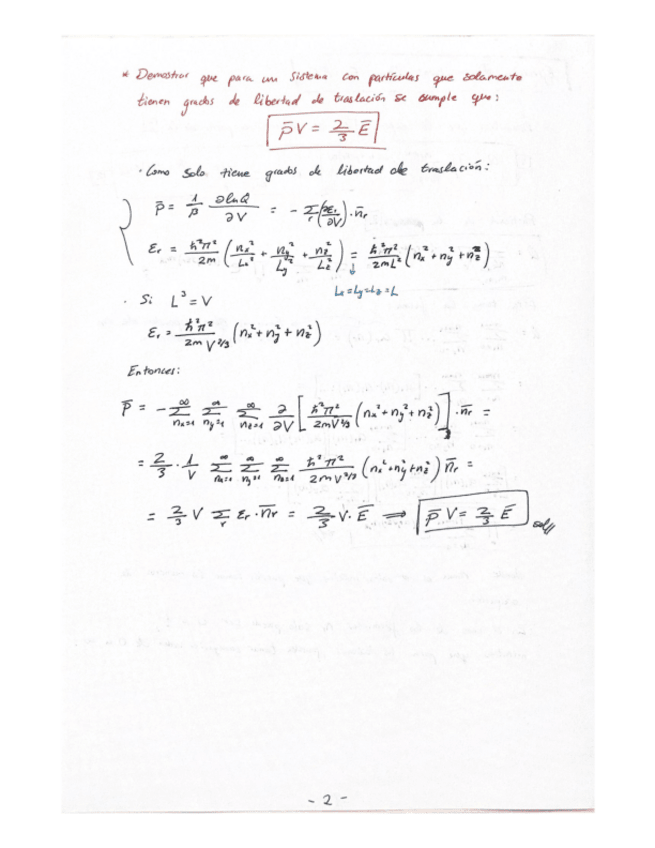 * Demostrar que para un sistema con partículas que solamente
tienen grados de libertad de traslación se cumple que:
p̄V = 2/3 Ē
· Como solo tiene grados de libertad de traslación:
p̄ = 1/β ∂lnQ/∂V = - Σ_r (∂ε_r/∂V) · n̄_r
ε_r = ħ²π²/2m (n_x²/L_x² + n_y²/L_y² + n_z²/L_z²) = ħ²π²/2mL² (n_x² + n_y² + n_z²)
↓
L_x = L_y = L_z = L
· Si L³ = V
ε_r = ħ²π²/2mV^2/3 (n_x² + n_y² + n_z²)
Entonces:
p̄ = - Σ_{n_x=1}^∞ Σ_{n_y=1}^∞ Σ_{n_z=1}^∞ ∂/∂V [ħ²π²/2mV^2/3 (n_x² + n_y² + n_z²)] · n̄_r =
= 2/3 · 1/V Σ_{n_x=1}^∞ Σ_{n_y=1}^∞ Σ_{n_z=1}^∞ ħ²π²/2mV^2/3 (n_x² + n_y² + n_z²) n̄_r =
= 2/3 V Σ_r ε_r · n̄_r = 2/3 V · Ē ⟹ p̄V = 2/3 Ē
- 2 -